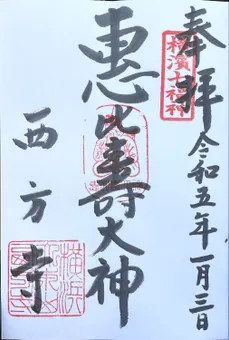 奉拝
横濱七福神
令和五年一月三日
惠比寿大神
西方寺